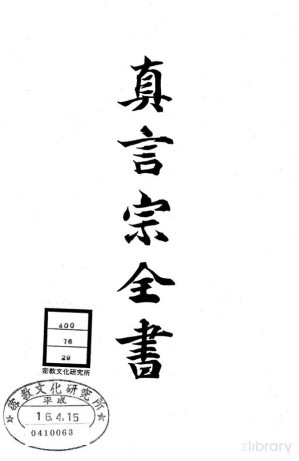 真言宗全書
400
76
29
密教文化研究所
密教文化研究所
平成
16.4.15
0410063
zlibrary